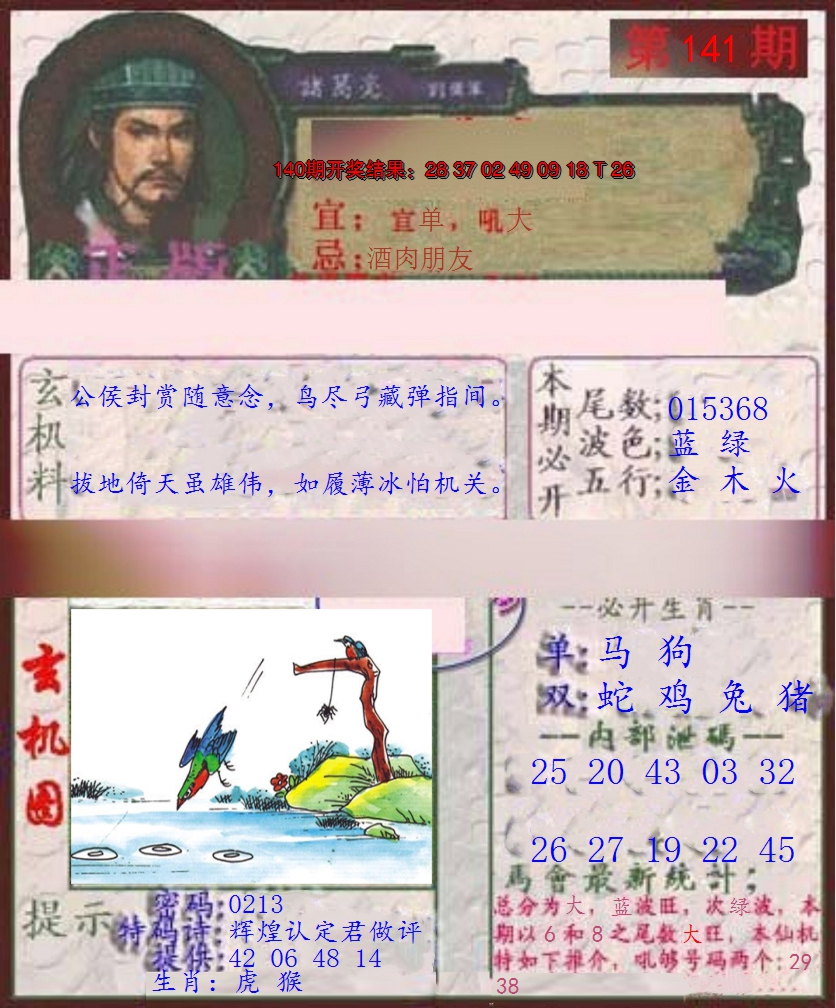 第 141 期
諸葛亮
140期开奖结果：28 37 02 49 09 18 T 26
宜：宜单，吼大
忌：酒肉朋友
正版
玄机料
公侯封赏随意念，鸟尽弓藏弹指间。
拔地倚天虽雄伟，如履薄冰怕机关。
本期必开
尾数；015368
波色；蓝 绿
五行；金 木 火
玄机图
--必开生肖--
单：马 狗
双：蛇 鸡 兔 猪
一一内部泄碼一一
25 20 43 03 32
26 27 19 22 45
馬會最新統計；
总分为大，蓝波旺，次绿波，本
期以6和8之尾数大旺，本仙机
特如下推介，吼够号码两个：29
38
提示
密码：0213
特码诗：辉煌认定君做评
提供：42 06 48 14
生肖：虎 猴